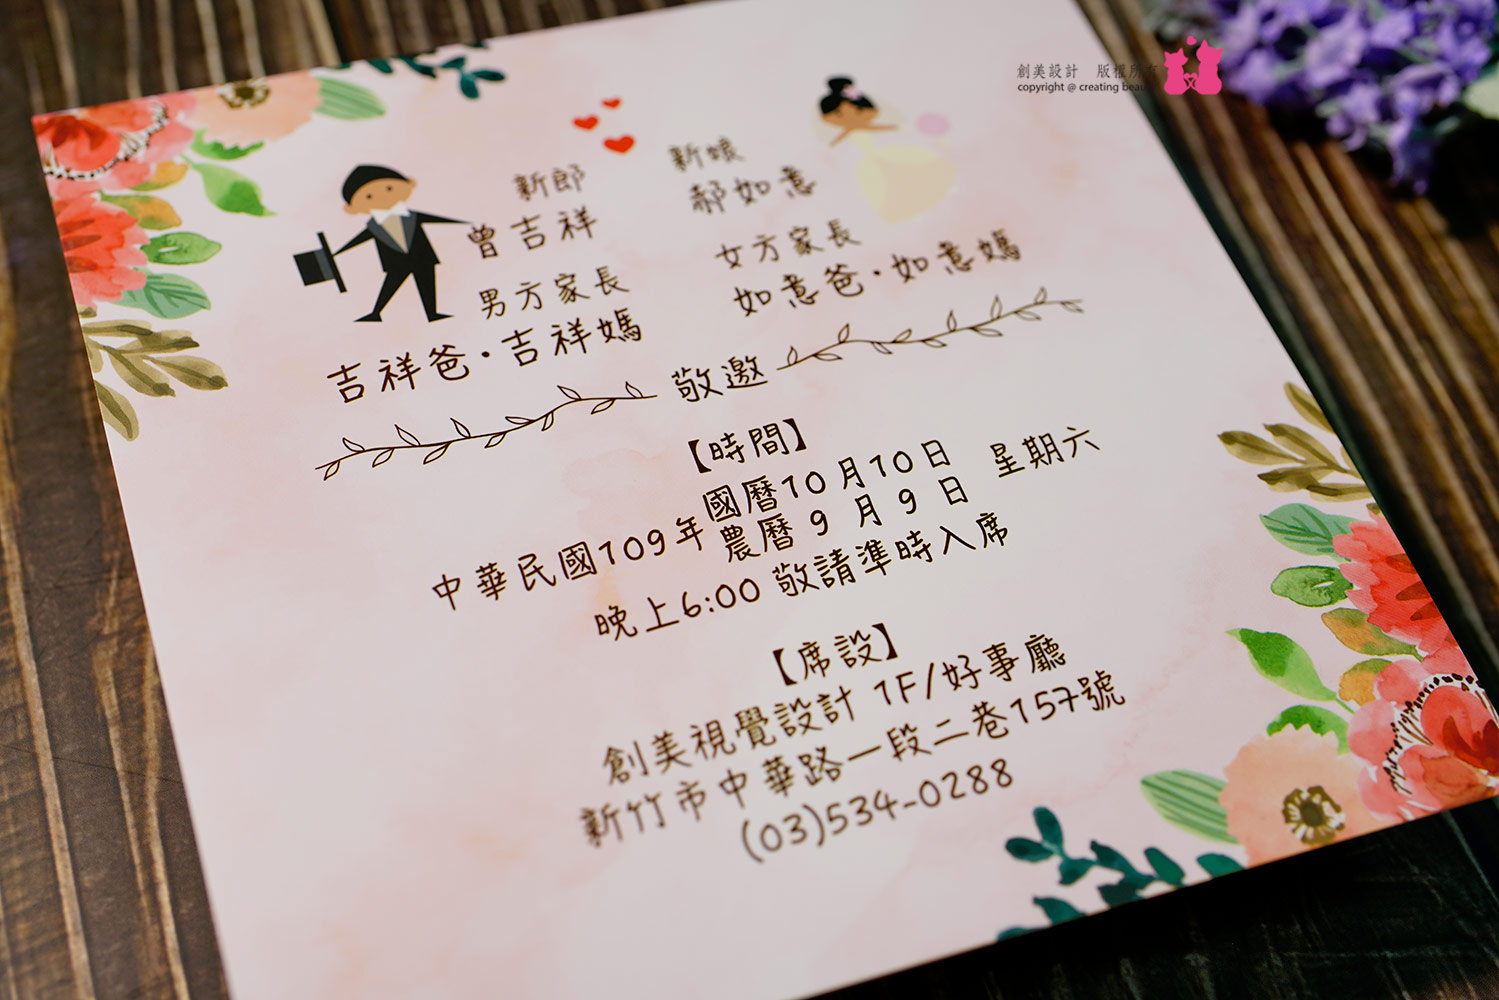 創美設計 版權所有
copyright @ creating beauty
新郎
曾吉祥
男方家長
吉祥爸·吉祥媽
新娘
郝如意
女方家長
如意爸·如意媽
敬邀
【時間】
中華民國109年 國曆10月10日 星期六
農曆 9 月 9 日
晚上6:00 敬請準時入席
【席設】
創美視覺設計 1F/好事廳
新竹市中華路一段二巷157號
(03)534-0288